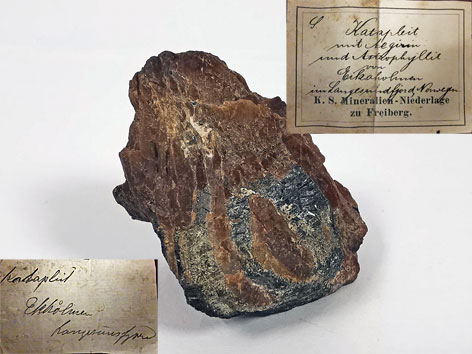 S.
Katapleit
mit Aegirin
und Astrophyllit
von
Eikaholmen
im Langesundfjord, Norwegen
K. S. Mineralien-Niederlage
zu Freiberg.
Katapleit
Eikholmen
Langesundfjord